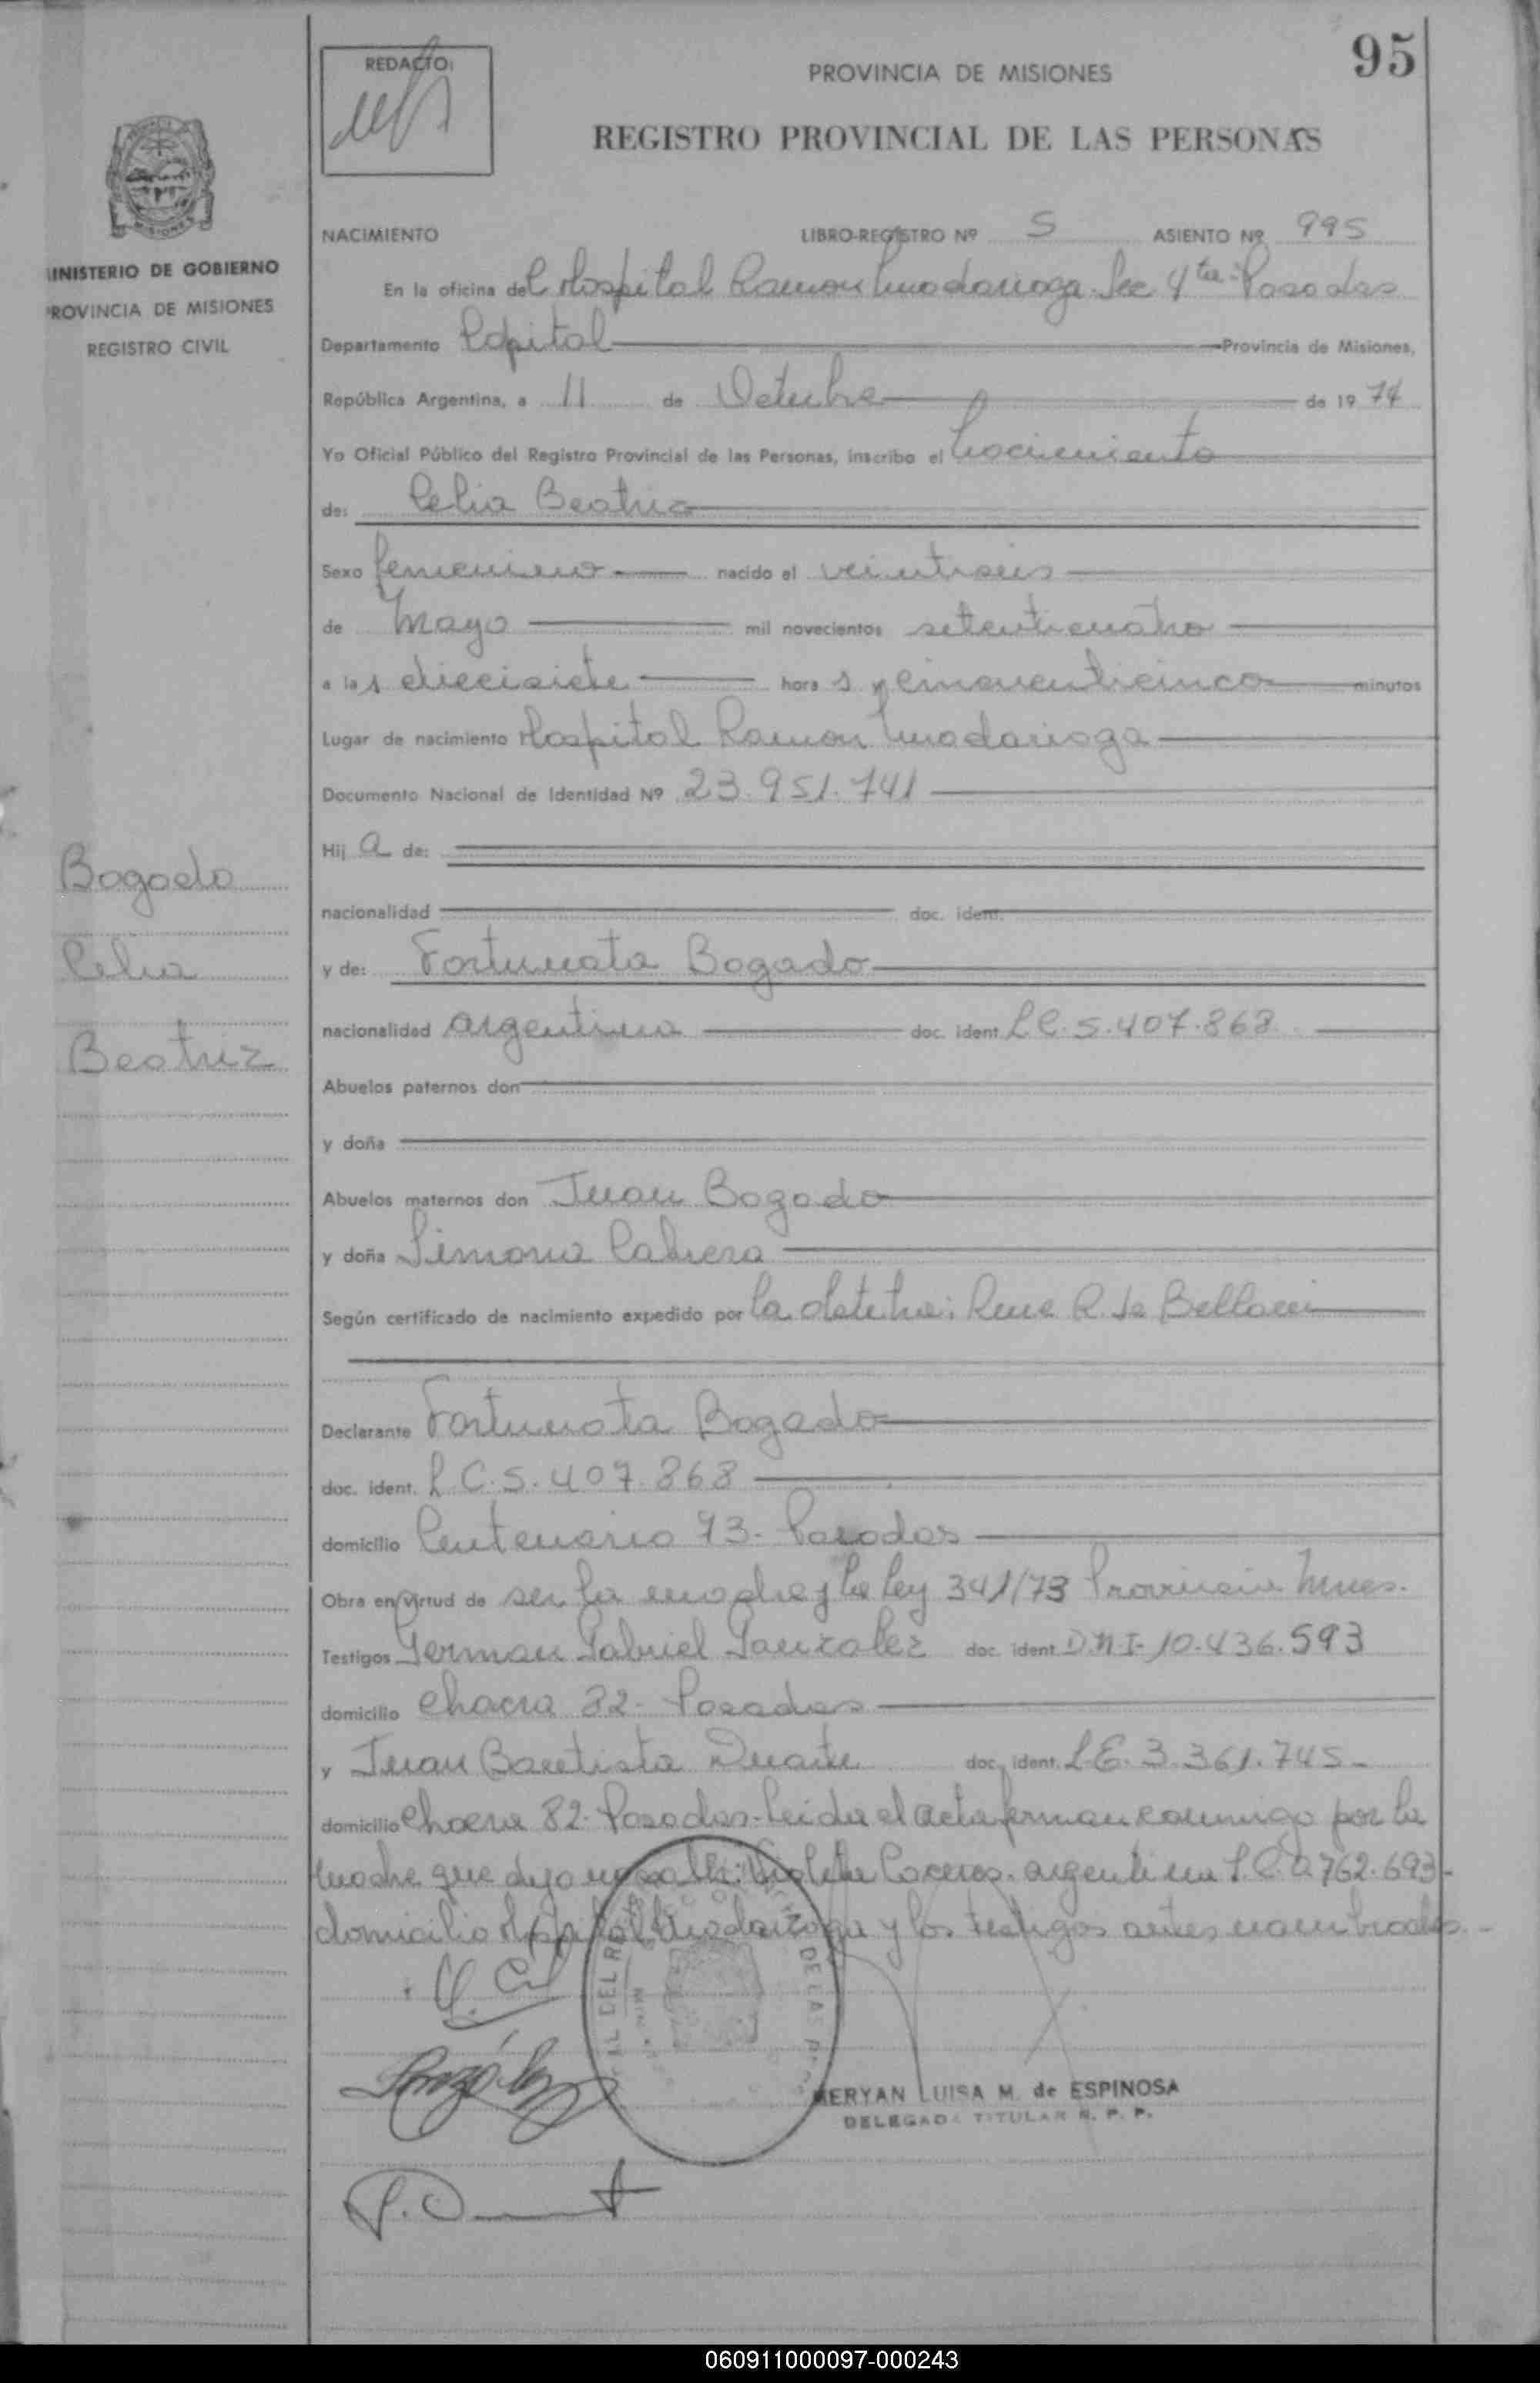 95
REDACTO:
PROVINCIA DE MISIONES
REGISTRO PROVINCIAL DE LAS PERSONAS
MISIONES
MINISTERIO DE GOBIERNO
PROVINCIA DE MISIONES
REGISTRO CIVIL
NACIMIENTO LIBRO-REGISTRO Nº 5 ASIENTO Nº 995
En la oficina del Hospital Ramon Madariaga. Sec 4ta Posadas
Departamento Capital Provincia de Misiones,
República Argentina, a 11 de Octubre de 1974
Yo Oficial Público del Registro Provincial de las Personas, inscribo el Nacimiento
de: Celia Beatriz
Sexo femenino nacido el veintiseis
de Mayo mil novecientos setenticuatro
a las diecisiete horas y cincuenticinco minutos
Lugar de nacimiento Hospital Ramon Madariaga
Documento Nacional de Identidad Nº 23.951.741
Hija de:
Bogado
nacionalidad doc. ident.
Celia
y de: Fortunata Bogado
nacionalidad argentina doc. ident. L.C. 5.407.868
Beatriz
Abuelos paternos don
y doña
Abuelos maternos don Juan Bogado
y doña Simona Cabrera
Según certificado de nacimiento expedido por la obstetra: R. de
Declarante Fortunata Bogado
doc. ident. L.C. 5.407.868
domicilio Centenario 93. Posadas
Obra en virtud de ser la madre y la ley 341/73 Provincia Mnes.
Testigos German Gabriel Gonzalez doc. ident. D.N.I. 10.436.593
domicilio chacra 82- Posadas
y Juan Bautista Duarte doc. ident. L.E. 3.361.745-
domicilio chacra 82- Posadas- leida el acta firman conmigo por la
madre que dijo no argentina L.C. 762.693-
domicilio Hospital Madariaga y los testigos antes nombrados.-
González
DE LAS
MERYAN LUISA M. de ESPINOSA
DELEGADA TITULAR R. P. P.
060911000097-000243